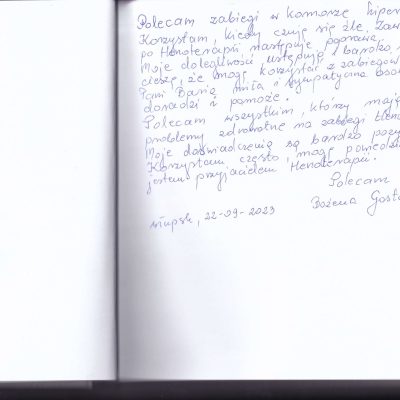 Polecam zabiegi w komorze hiper
Korzystam, kiedy czuję się źle. Zaw
po Henoterapii następuje poprawa.
Moje dolegliwości ustępują, bardzo
cieszę, że mogę korzystać z zabiegów
Pani Basia miła i sympatyczna oso
doradzi i pomoże.
Polecam wszystkim, którzy mają
problemy zdrowotne na zabiegi tleno
Moje doświadczenia są bardzo pozy
Korzystam często, mogę powiedzi
jestem przyjacielem Henoterapii.
Polecam
Bożena Gosta
Słupsk, 22-09-2023